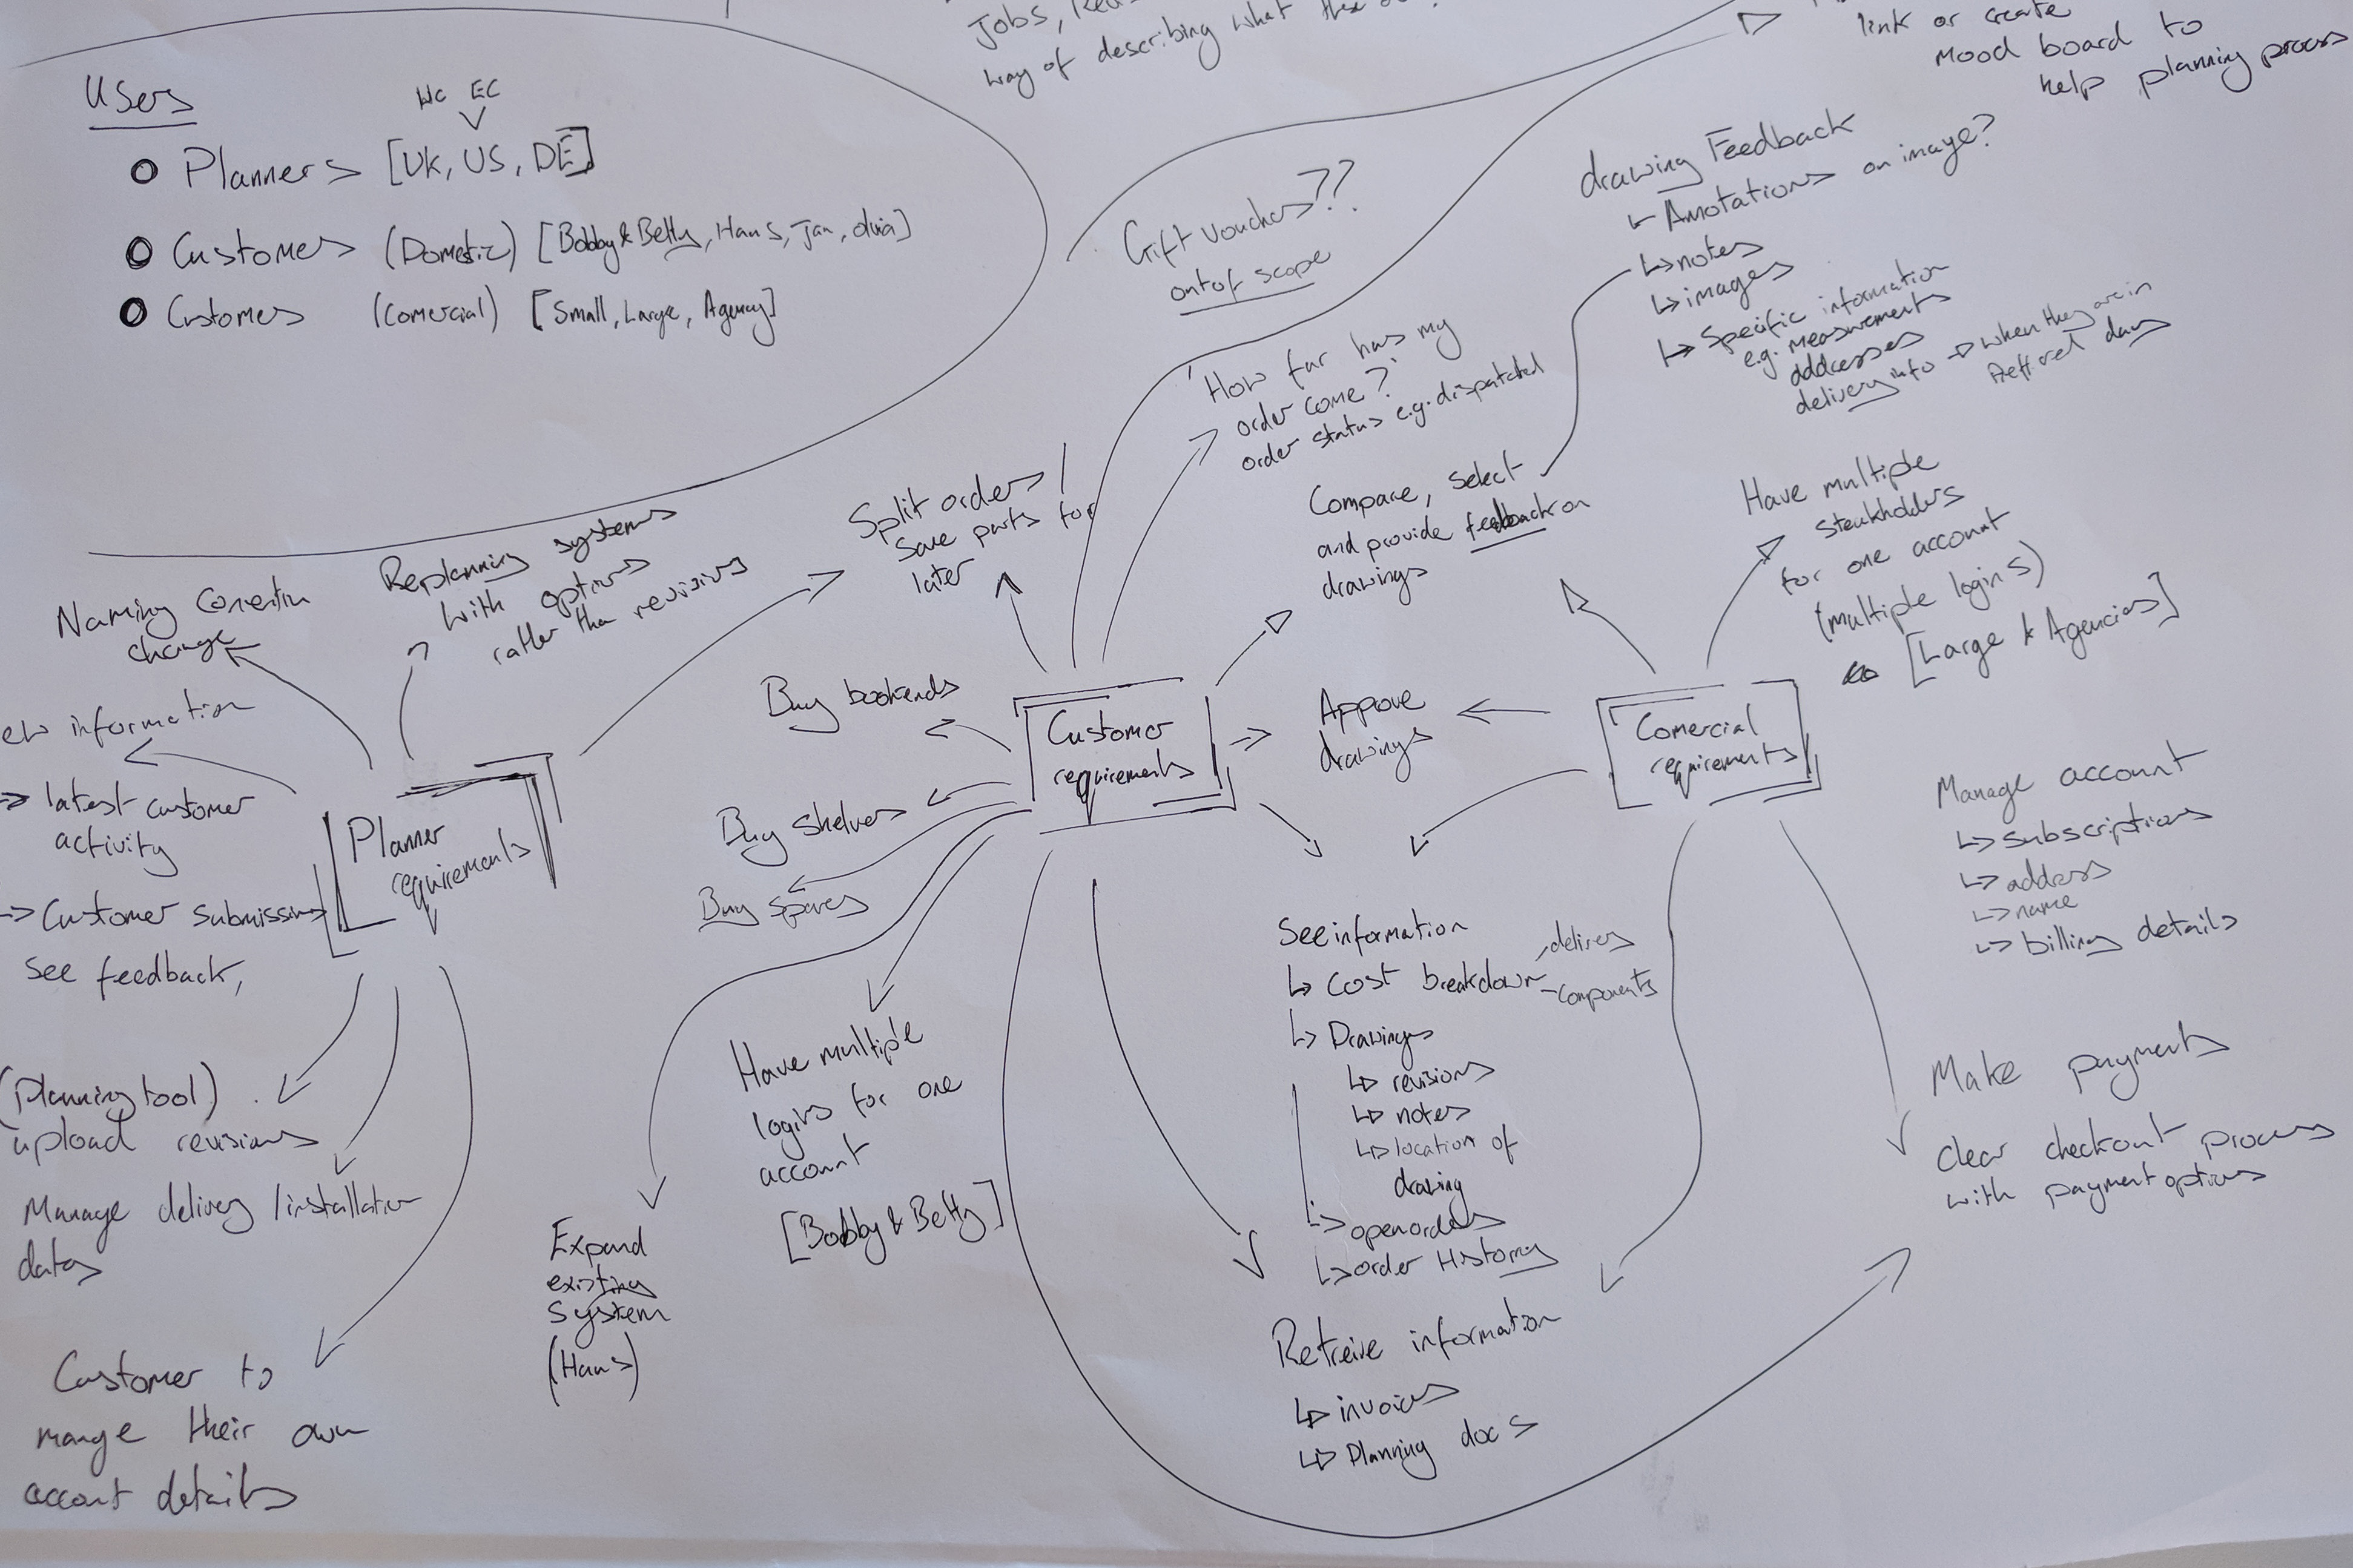 Jobs,
way of describing what
link or create
Mood board to
help planning process
Users
WC EC
Planners [UK, US, DE]
Customers (Domestic) [Bobby & Betty, Hans, Jan, olivia]
Customers (Comercial) [Small, Large, Agency]
Gift vouchers??
out of scope
drawing Feedback
Annotations on image?
notes
images
Specific information
e.g. measurements
addresses
delivery info → when they are in
Preffered days
'How far has my
order come?'
order status e.g. dispatched
Split orders /
Save parts for
later
Compare, select
and provide feedback on
drawings
Have multiple
Steakholders
for one account
(multiple logins)
[Large & Agencies]
Naming Convention
change
Replanning systems
with options
rather than revisions
information
latest customer
activity
Customer submissions
See feedback,
Planner
requirements
Buy bookends
Buy Shelves
Buy spares
Customer
requirements
Approve
drawings
Comercial
requirements
Manage account
subscriptions
address
name
billing details
See information
Cost breakdown
delivery
components
Drawings
revisions
notes
location of
drawing
open orders
order History
Have multiple
logins for one
account
[Bobby & Betty]
Expand
existing
System
(Hans)
(Planning tool)
upload revisions
Manage delivery / installation
dates
Customer to
mange their own
account details
Make payments
Clear checkout process
with payment options
Retreive information
invoices
Planning docs